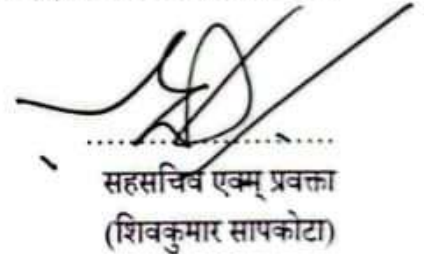 सहसचिव एवम् प्रवक्ता
(शिवकुमार सापकोटा)